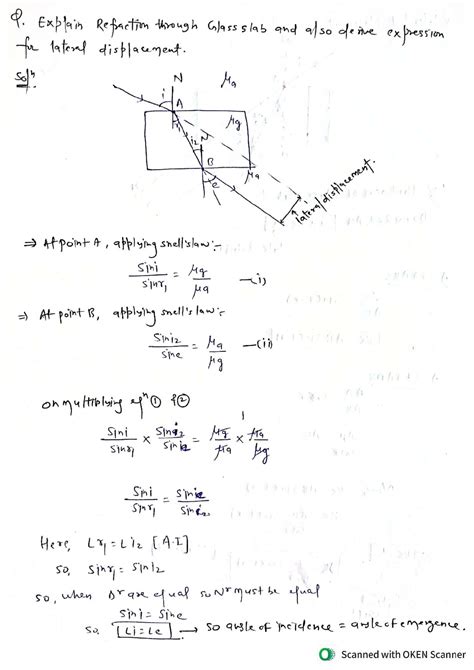 Q. Explain Refraction through Glass slab and also derive expression
for lateral displacement.
Solⁿ.
N
μa
i
A
r1
μg
i2
N
B
μa
e
lateral displacement.
⇒ At point A, applying snell's law :-
Sini / Sinr1 = μg / μa —(i)
⇒ At point B, applying snell's law :-
Sini2 / Sine = μa / μg —(ii)
on multiplying eqⁿ ① & ②
Sini / Sinr1 × Sini2 / Sine = μg / μa × μa / μg
1
Sini / Sinr1 = Sine / Sini2
Here, ∠r1 = ∠i2 [A.I]
So, Sinr1 = Sini2
So, when Dʳ are equal so Nʳ must be equal
Sini = Sine
So, ∠i = ∠e → So angle of incidence = angle of emergence.
Scanned with OKEN Scanner